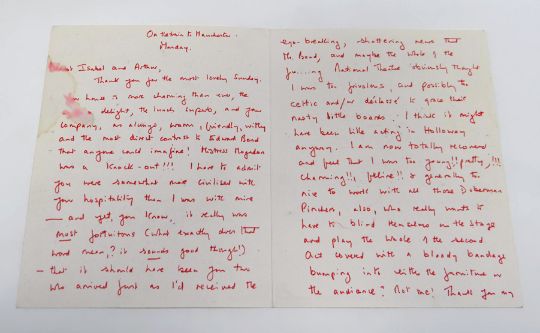 On the train to Manchester.
Monday.
Isabel and Arthur,
Thank you for the most lovely Sunday.
house is more charming than ever, the
delight, the lunch superb, and your
company, as always, warm, friendly, witty
and the most direct contrast to Edward Bond
that anyone could imagine! Mistress Magedan
was a knock-out!!! I have to admit
you were somewhat more civilised with
your hospitality than I was with mine
— and yet, you know, it really was
most fortuitous (what exactly does that
word mean,? it sounds good though!)
— that it should have been you two
who arrived just as I'd received the
ego-breaking, shattering news that
Mr Bond, and maybe the whole of the
fu....ing National Theatre obviously thought
I was too frivolous, and possibly too
celtic and/or déclassé to grace their
nasty little boards. I think it might
have been like acting in Holloway
anyway. I am now totally recovered
and feel that I was too young!! pretty, !!!
charming!!, feline!! & generally too
nice to work with all those Doberman
Pinchers, also, who really wants to
have to blind themselves on the stage
and play the whole of the second
Act covered with a bloody bandage
bumping into either the furniture or
the audience? Not me! Thank you my